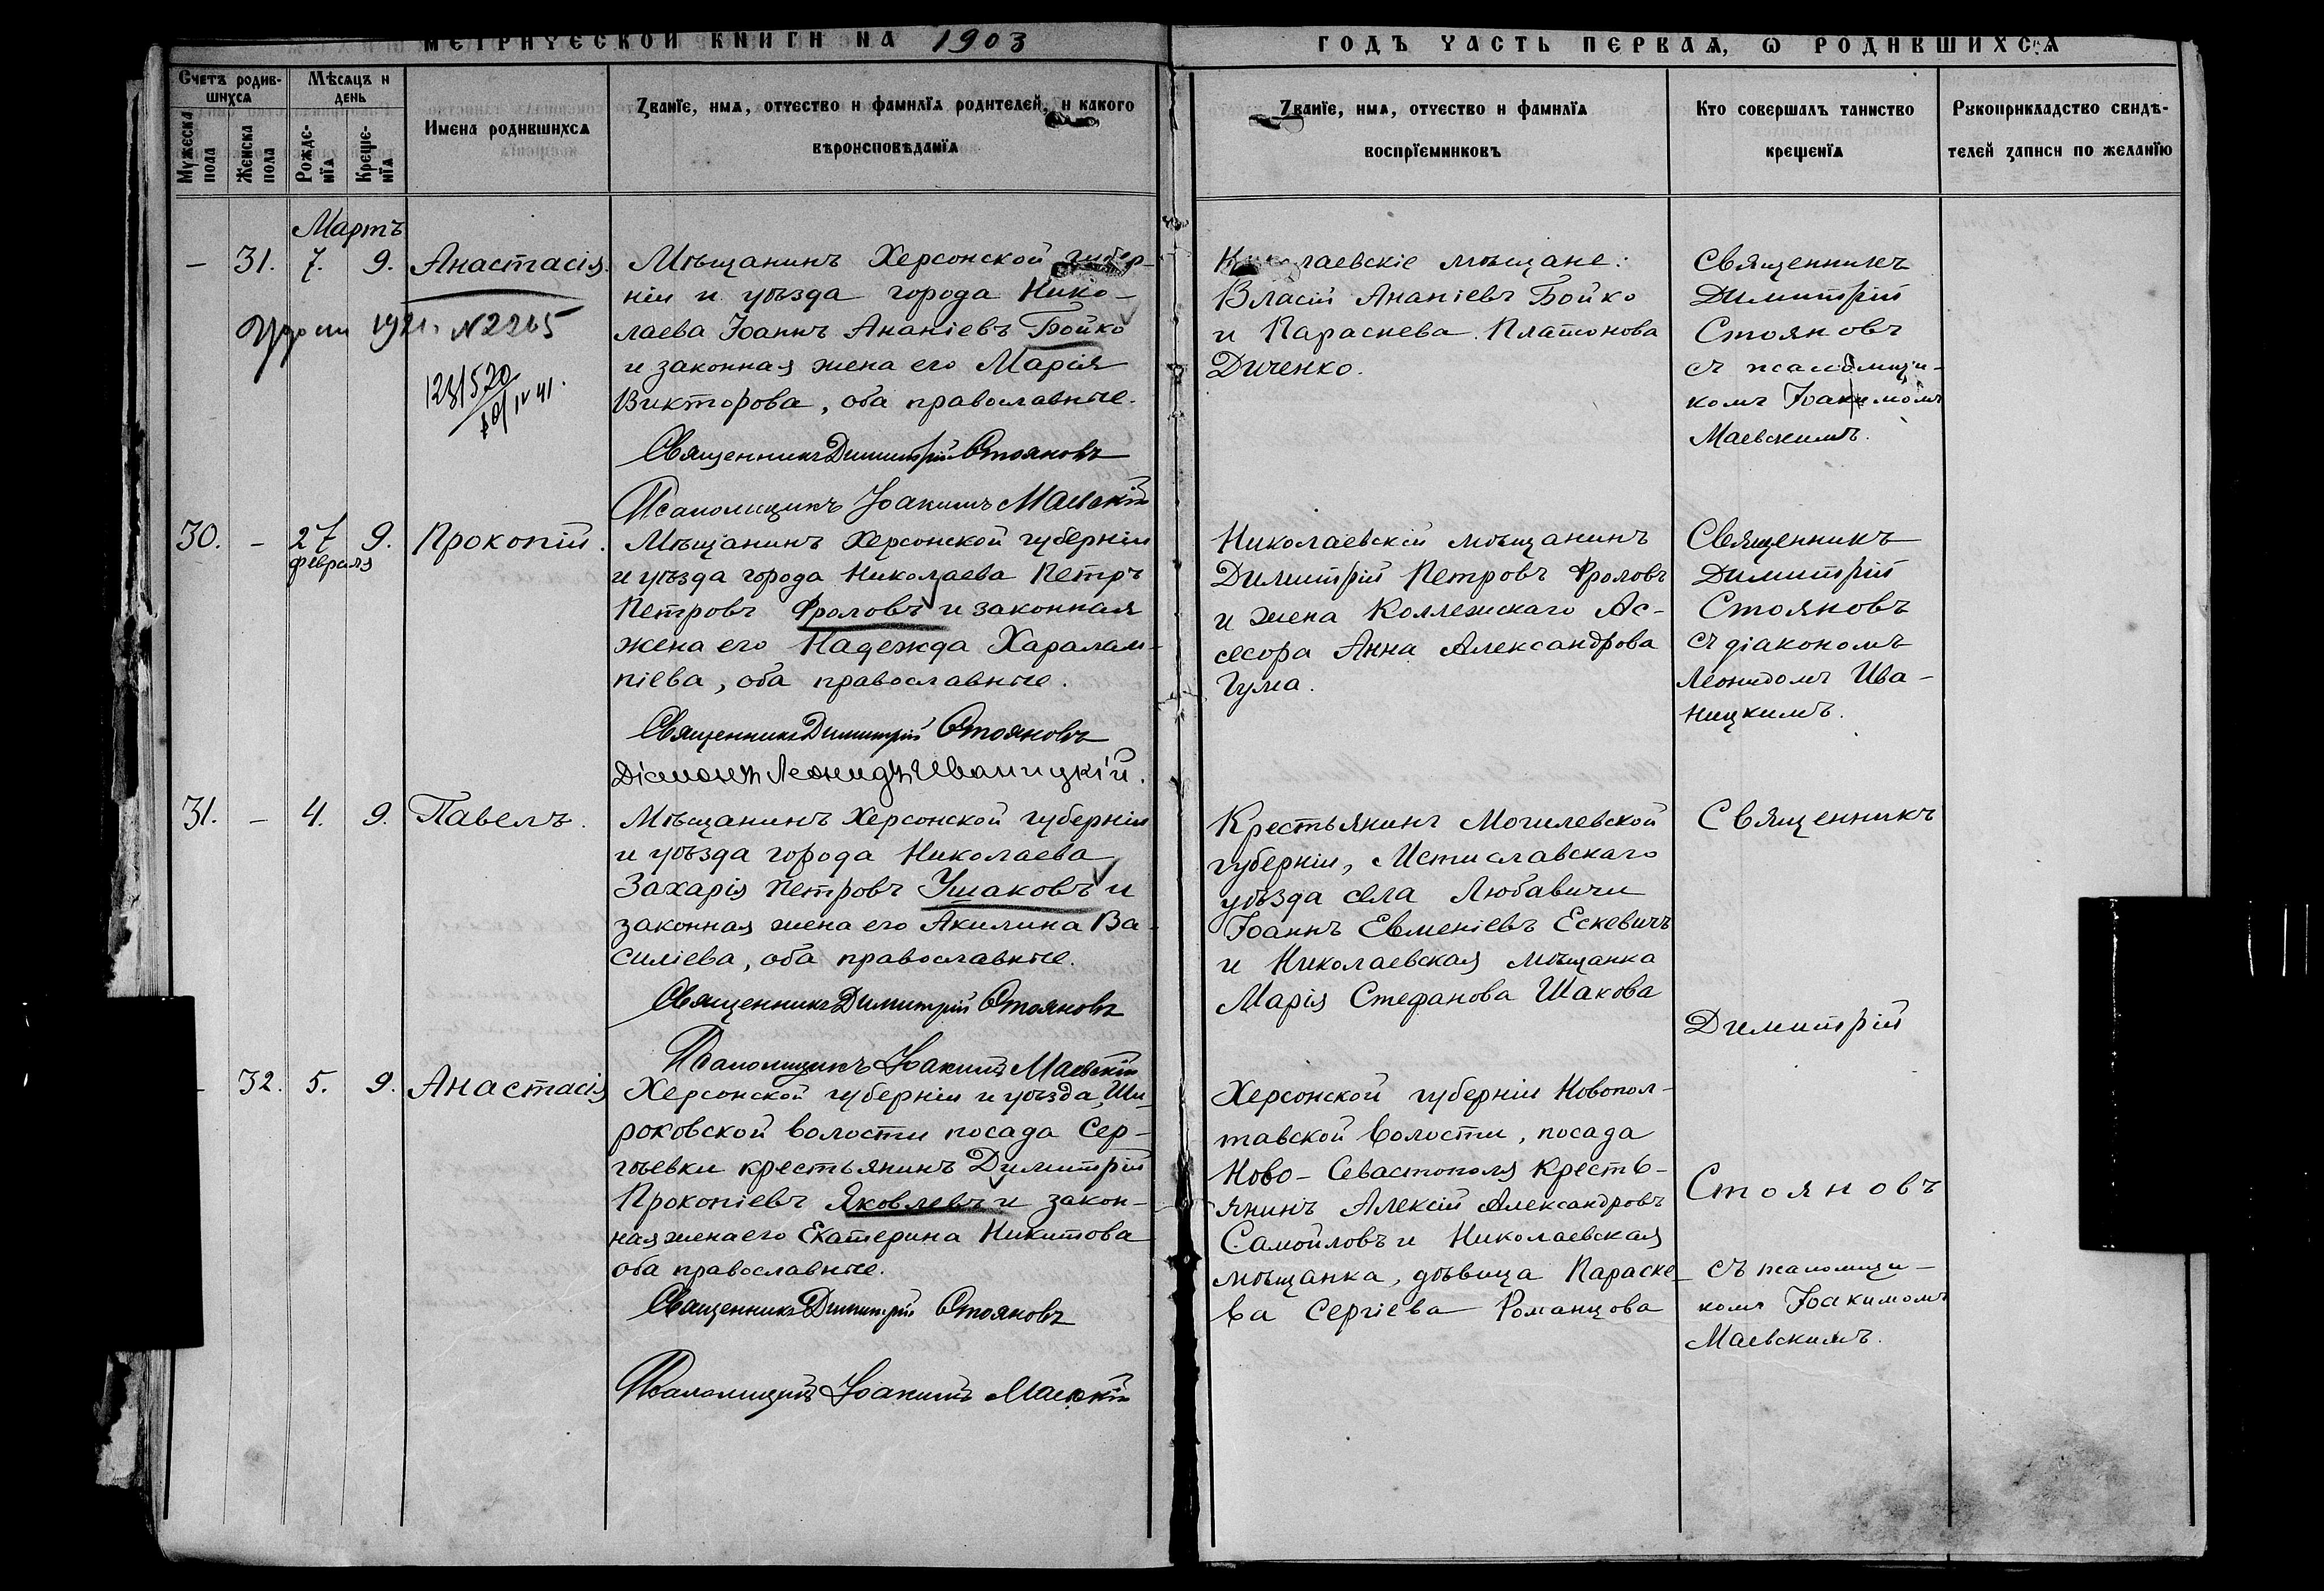 МЕТРИЧЕСКОЙ КНИГИ НА 1903
ГОДЪ ЧАСТЬ ПЕРВАЯ, Ѡ РОДИВШИХСЯ
Счетъ родив-
шихся
Мужеска
пола
Женска
пола
Мѣсяцъ и
день
Рожде-
нїя
Креще-
нїя
Имена родившихся
Званїе, имя, отчество и фамилїя родителей, и какого
вѣроисповѣданїя
Званїе, имя, отчество и фамилїя
воспрїемниковъ
Кто совершалъ таинство
крещенїя
Рукоприкладство свидѣ-
телей записи по желанїю
Мартъ
— 31. 7. 9. Анастасія.
1921. N2265
Мѣщанинъ Херсонской губер-
ніи и уѣзда города Нико-
лаева Іоаннъ Ананіевъ Бойко
и законная жена его Марія
Викторова, оба православные.
Священникъ Димитрій Стояновъ
Псаломщикъ Іоакимъ Маевскій
Николаевскіе мѣщане:
Власій Ананіевъ Бойко
и Параскева Платонова
Диченко.
Священникъ
Димитрій
Стояновъ
съ псаломщи-
комъ Іоакимомъ
Маевскимъ.
30. — 27 9. Прокопій.
февраля
Мѣщанинъ Херсонской губерніи
и уѣзда города Николаева Петръ
Петровъ Фроловъ и законная
жена его Надежда Харалам-
піева, оба православные.
Священникъ Димитрій Стояновъ
Діаконъ Леонидъ Иваницкій.
Николаевскій мѣщанинъ
Димитрій Петровъ Фроловъ
и жена Коллежскаго Ас-
сесора Анна Александрова
Гума.
Священникъ
Димитрій
Стояновъ
съ діакономъ
Леонидомъ Ива-
ницкимъ.
31. — 4. 9. Павелъ.
Мѣщанинъ Херсонской губерніи
и уѣзда города Николаева
Захарія Петровъ Ушаковъ и
законная жена его Акилина Ва-
силіева, оба православные.
Священникъ Димитрій Стояновъ
Псаломщикъ Іоакимъ Маевскій
Крестьянинъ Могилевской
губерніи, Мстиславскаго
уѣзда села Любавичи
Іоаннъ Евменіевъ Ескевичъ
и Николаевская мѣщанка
Марія Стефанова Шакова
Священникъ
Димитрій
- 32. 5. 9. Анастасія
Херсонской губерніи и уѣзда, Ши-
роковской волости посада Сер-
гѣевки крестьянинъ Димитрій
Прокопіевъ Яковлевъ и закон-
ная жена его Екатерина Никитова
оба православные.
Священникъ Димитрій Стояновъ
Псаломщикъ Іоакимъ Маевскій
Херсонской губерніи Новопол-
тавской волости, посада
Ново-Севастополя кресть-
янинъ Алексій Александровъ
Самойловъ и Николаевская
мѣщанка, дѣвица Параске-
ва Сергіева Романцова
Стояновъ
съ псаломщи-
комъ Іоакимомъ
Маевскимъ.